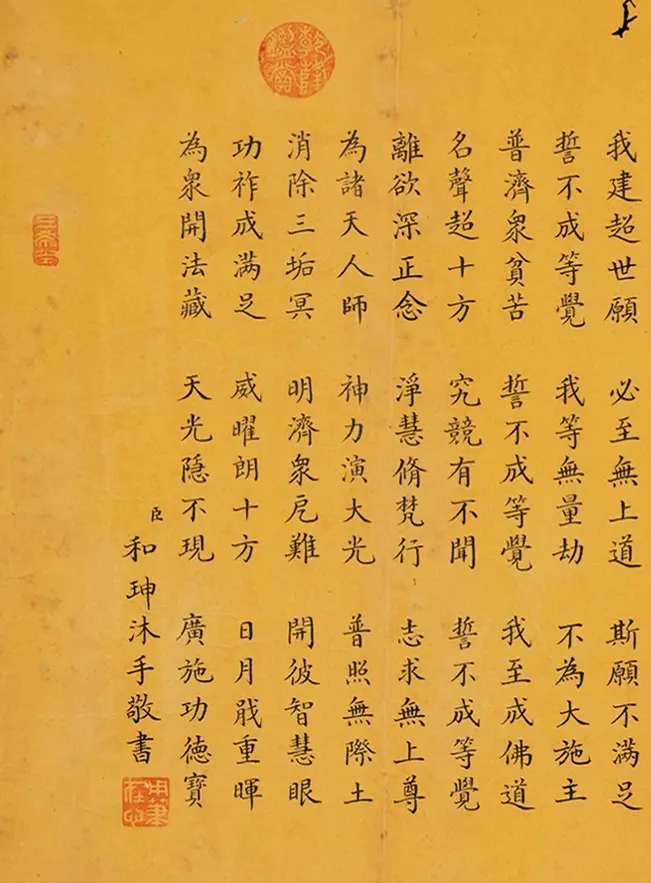 我建超世願 必至無上道 斯願不滿足
誓不成等覺 我等無量劫 不為大施主
普濟衆貧苦 誓不成等覺 我至成佛道
名聲超十方 究競有不聞 誓不成等覺
離欲深正念 淨慧脩梵行 志求無上尊
為諸天人師 神力演大光 普照無際土
消除三垢冥 明濟衆厄難 開彼智慧眼
乾隆鑑賞
功祚成滿足 威曜朗十方 日月戢重暉
為衆開法藏 天光隱不現 廣施功德寶
臣和珅沐手敬書
用筆在心
三希堂